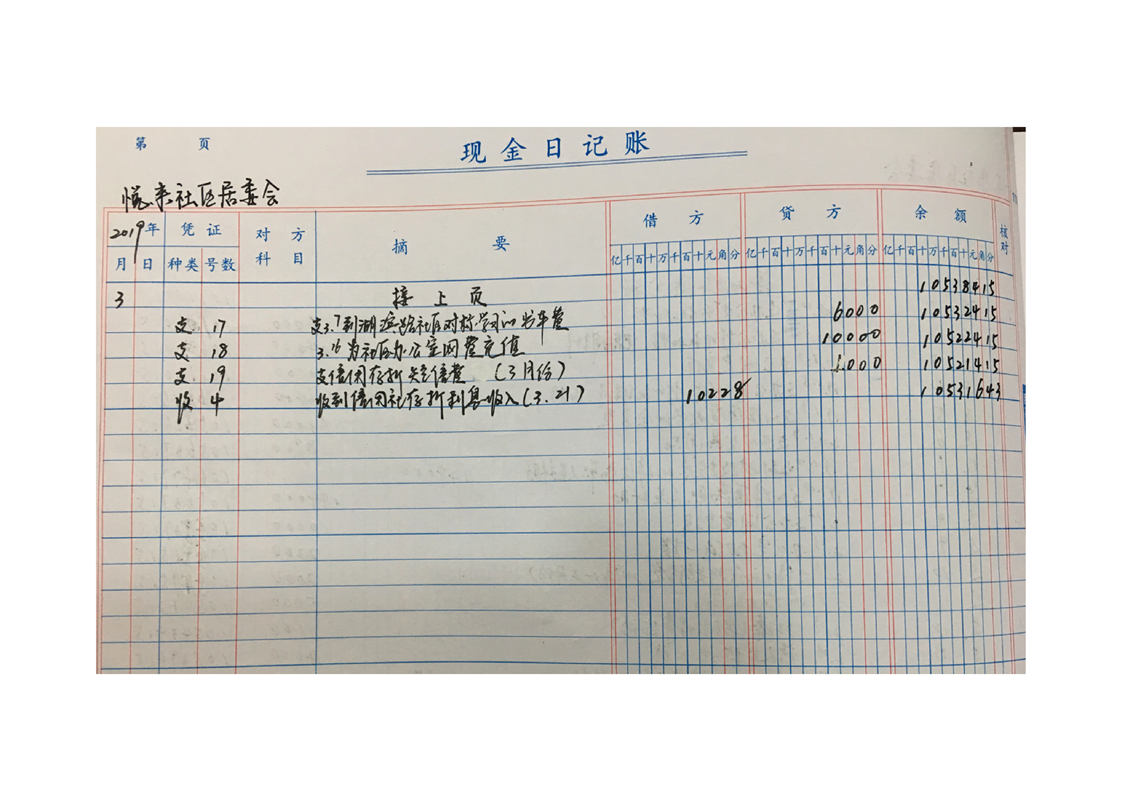 第 页
现金日记账
悦来社区居委会
2019年 凭证 对方科目 摘要 借方 贷方 余额 核对
月 日 种类 号数 亿千百十万千百十元角分 亿千百十万千百十元角分 亿千百十万千百十元角分
3 接上页 10538415
支 17 支3.7到湖滨路社区对标学习的出车费 6000 10532415
支 18 3.16为社区办公室网费充值 10000 10522415
支 19 支信用存折短信费 (3月份) 1000 10521415
收 4 收到信用社存折利息收入(3.21) 10228 10531643